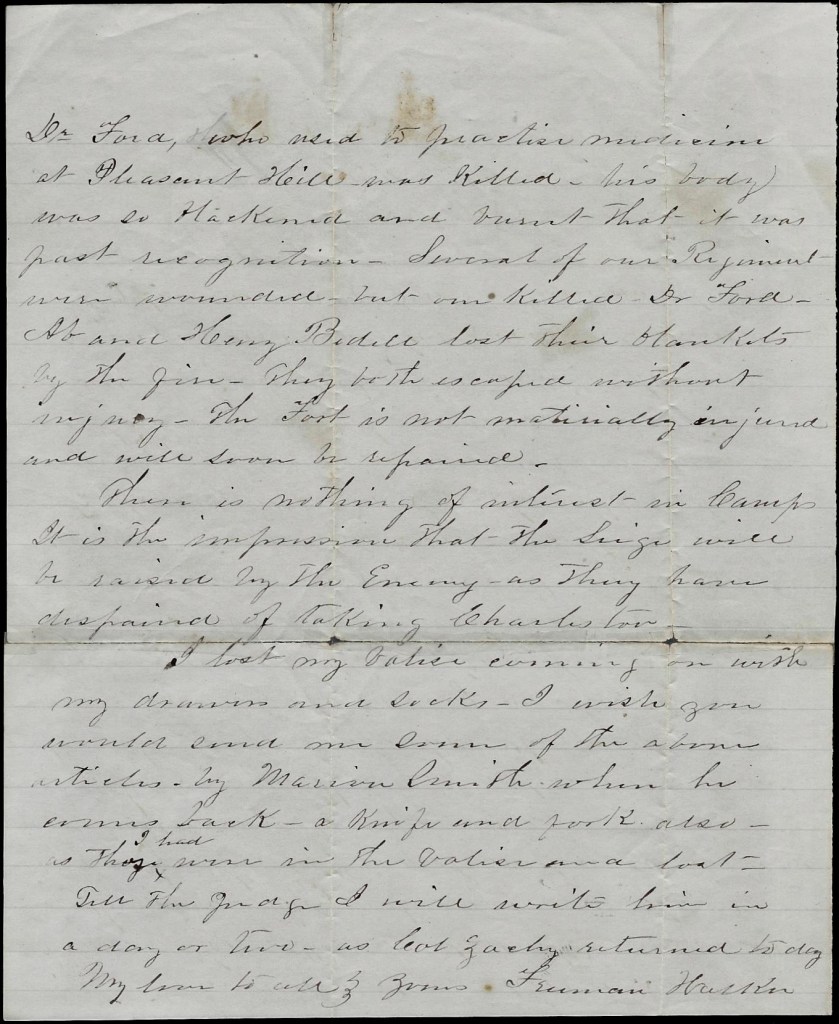 Dr Ford, who used to practise medicine
at Pleasant Hill was Killed - his body
was so blackened and burnt that it was
past recognition - Several of our Regiment
were wounded - but one killed - Dr Ford -
Ab and Henry Bedell lost their blankets
by the fire - They both escaped without
injury - The Fort is not materially injured
and will soon be repaired -
There is nothing of interest in Camp
It is the impression that the Seige will
be raised by the Enemy - as they have
despaired of taking Charleston -
I lost my Valise coming on with
my drawers and socks - I wish you
would send me some of the above
articles - by Marion Smith when he
comes back - a Knife and fork also -
I had
as those were in the Valise and lost -
Tell the Judge I will write him in
a day or two - as Col Zachry returned to day
My love to all & Yours Freeman